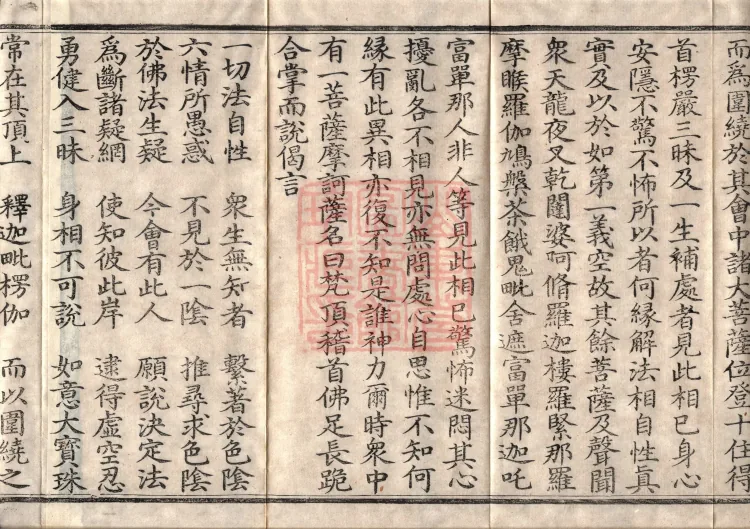 而爲圍繞於其會中諸大菩薩位登十住得
首楞嚴三昧及一生補處者見此相已身心
安隱不驚不怖所以者何緣解法相自性真
實及以於如第一義空故其餘菩薩及聲聞
衆天龍夜叉乾闥婆呵脩羅迦樓羅緊那羅
摩睺羅伽鳩槃茶餓鬼毗舍遮富單那迦吒
富單那人非人等見此相已驚怖迷悶其心
擾亂各不相見亦無問處心自思惟不知何
緣有此異相亦復不知是誰神力爾時衆中
有一菩薩摩訶薩名曰梵頂稽首佛足長跪
合掌而說偈言
一切法自性 衆生無知者 繫著於色陰
六情所愚惑 不見於一陰 推尋求色陰
於佛法生疑 今會有此人 願說決定法
爲斷諸疑網 使知彼此岸 逮得虛空忍
勇健入三昧 身相不可說 如意大寶珠
常在其頂上 釋迦毗楞伽 而以圍繞之